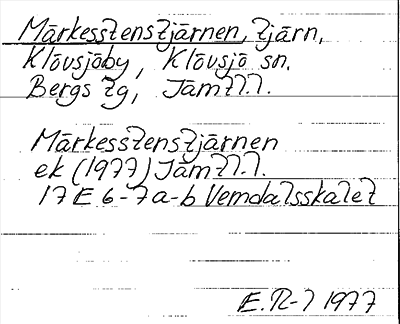 Märkesstenstjärnen, tjärn,
Klövsjöby, Klövsjö sn.
Bergs tg, Jämtl.l.
Märkesstenstjärnen
ek (1977) Jämtl.l.
17 E 6-7a-b Vemdalsskalet
E.R-l 1977